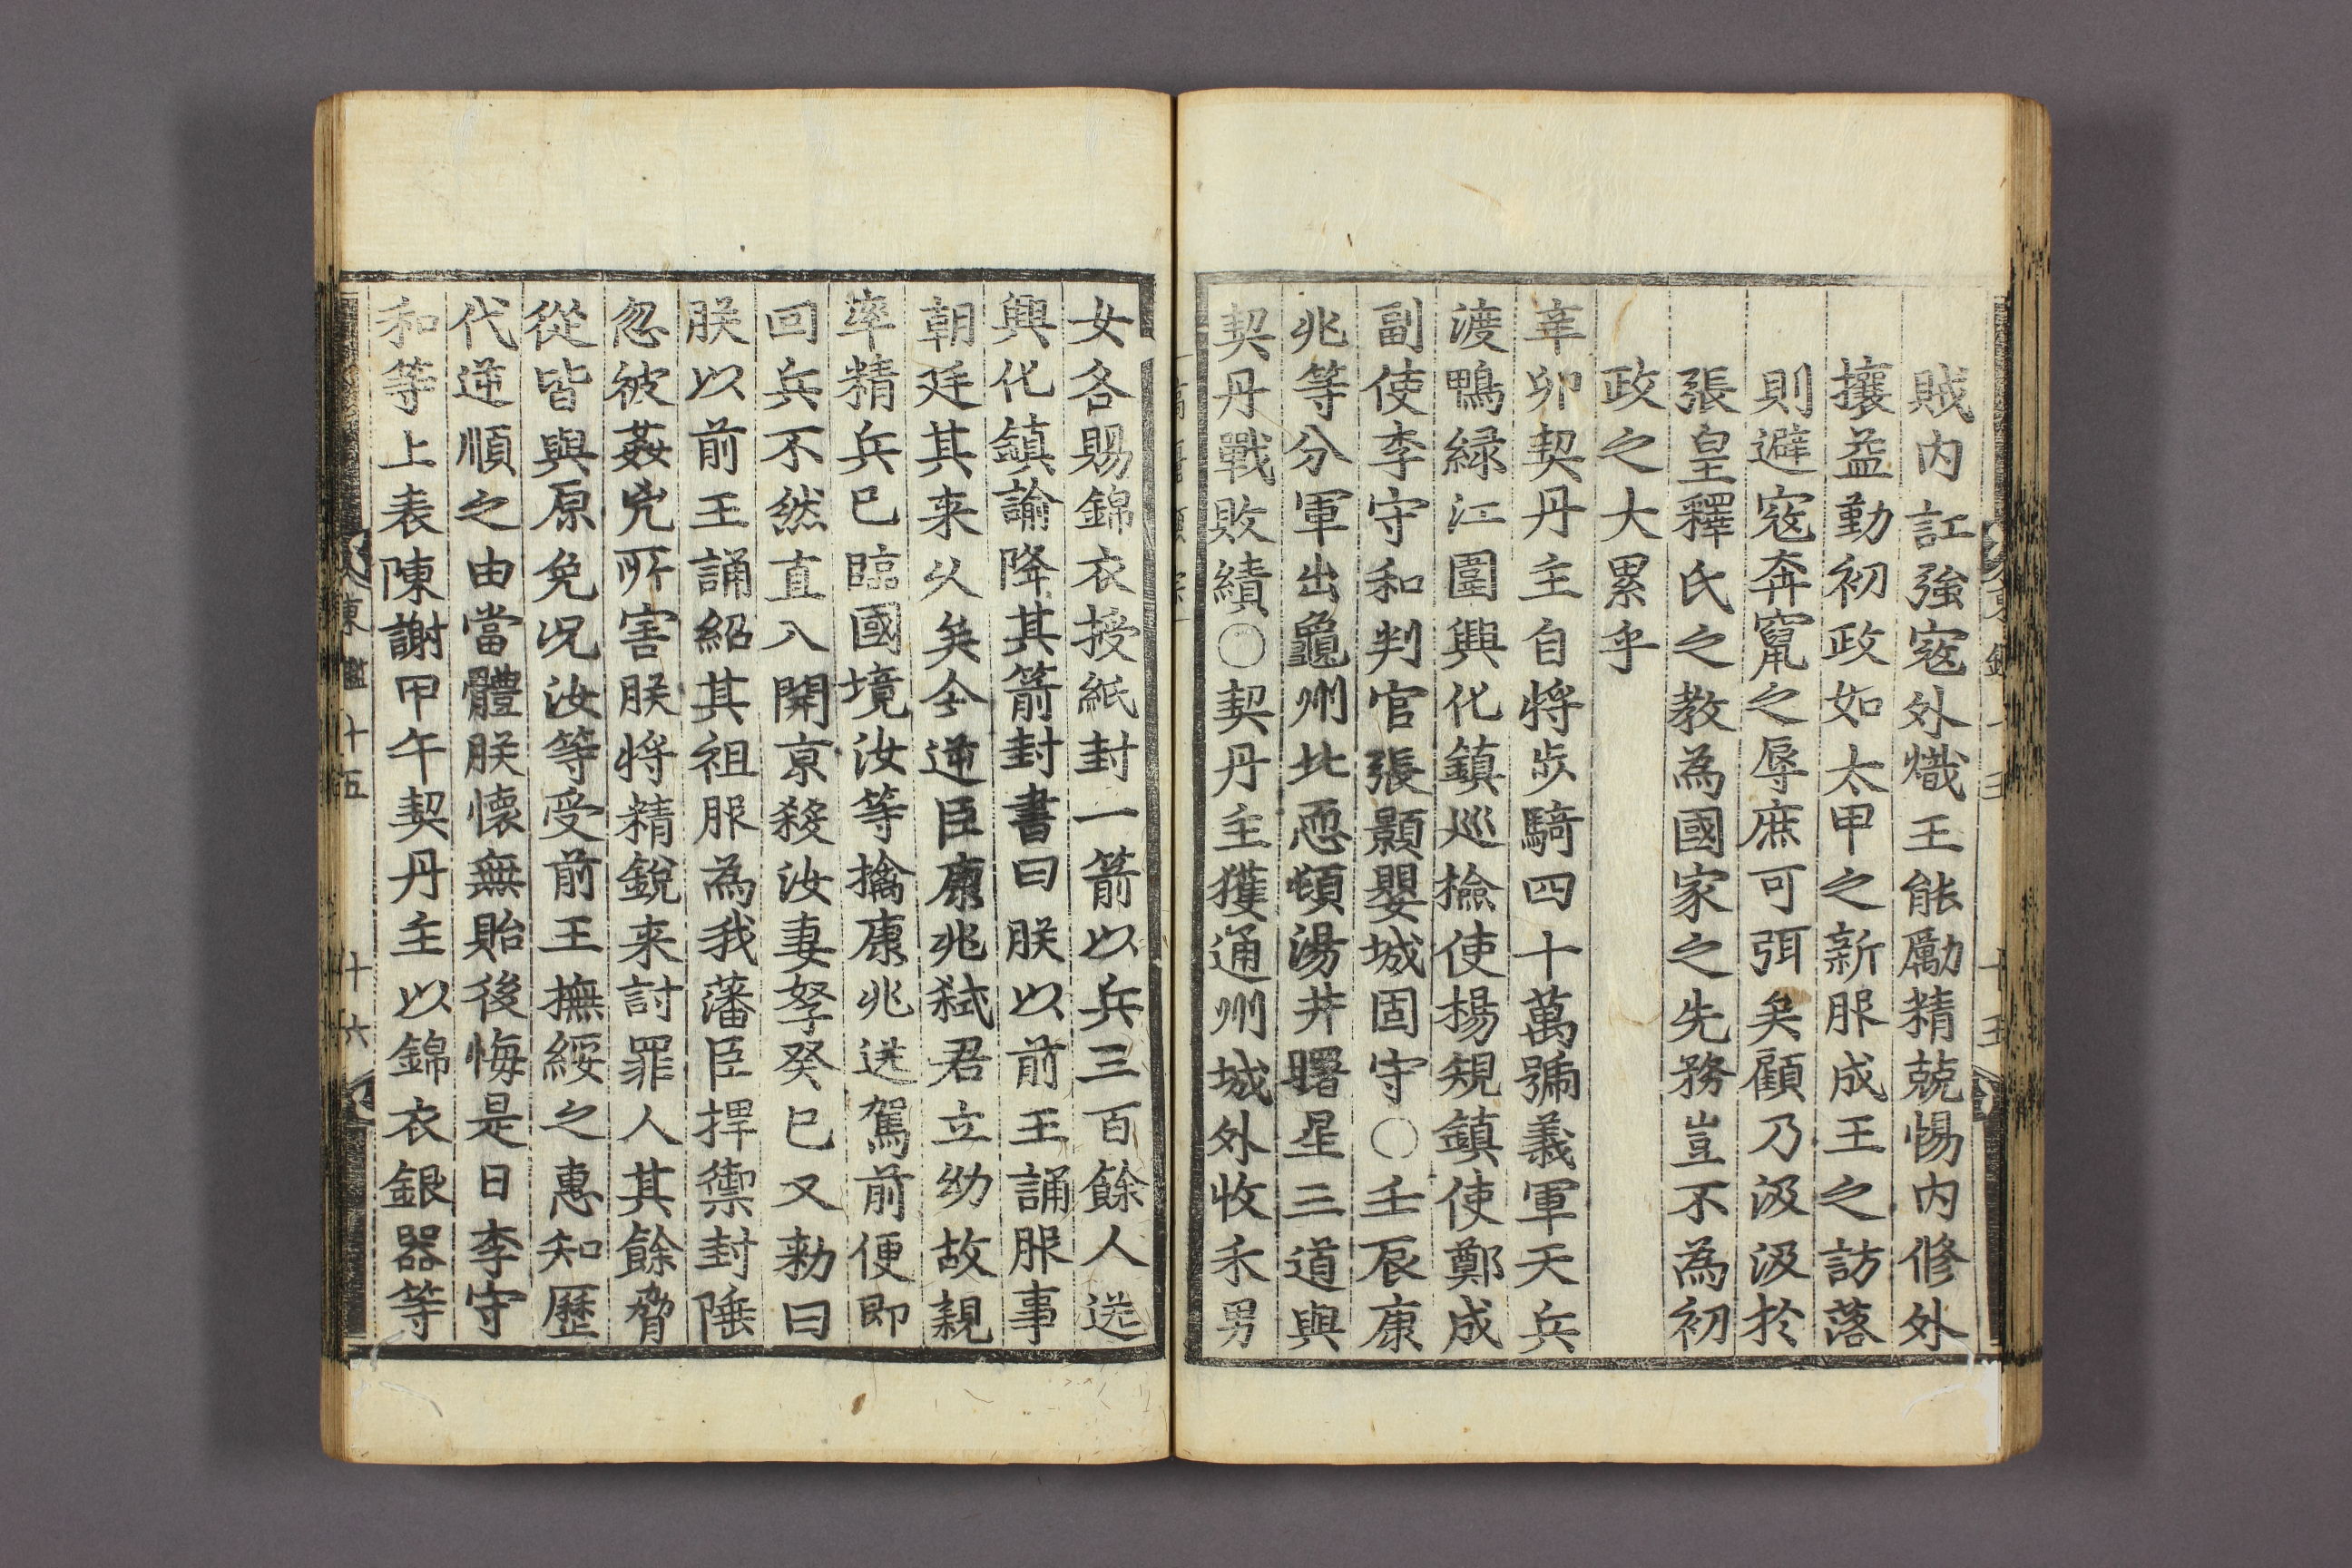 賊内訌強寇外熾王能勵精兢惕内修外
攘益勤初政如太甲之新服成王之訪落
則避寇奔竄之辱庶可弭矣顧乃汲汲於
張皇釋氏之教為國家之先務豈不為初
政之大累乎
辛卯契丹主自将歩騎四十萬號義軍天兵
渡鴨緑江圍興化鎮巡撿使楊規鎮使鄭成
副使李守和判官張顥嬰城固守○壬辰康
兆等分軍出龜州北恧頓湯井曙星三道與
契丹戰敗績○契丹主獲通州城外收禾男
女各賜錦衣授紙封一箭以兵三百餘人送
興化鎮諭降其箭封書曰朕以前王誦服事
朝廷其来久矣今逆臣康兆弑君立幼故親
率精兵已臨國境汝等擒康兆送駕前便即
回兵不然直入開京殺汝妻孥癸巳又勑曰
朕以前王誦紹其祖服為我藩臣捍禦封陲
忽被姦兇所害朕将精銳来討罪人其餘脅
從皆與原免况汝等受前王撫綏之惠知歷
代逆順之由當體朕懐無貽後悔是日李守
和等上表陳謝甲午契丹主以錦衣銀器等
東鑑十五
十六